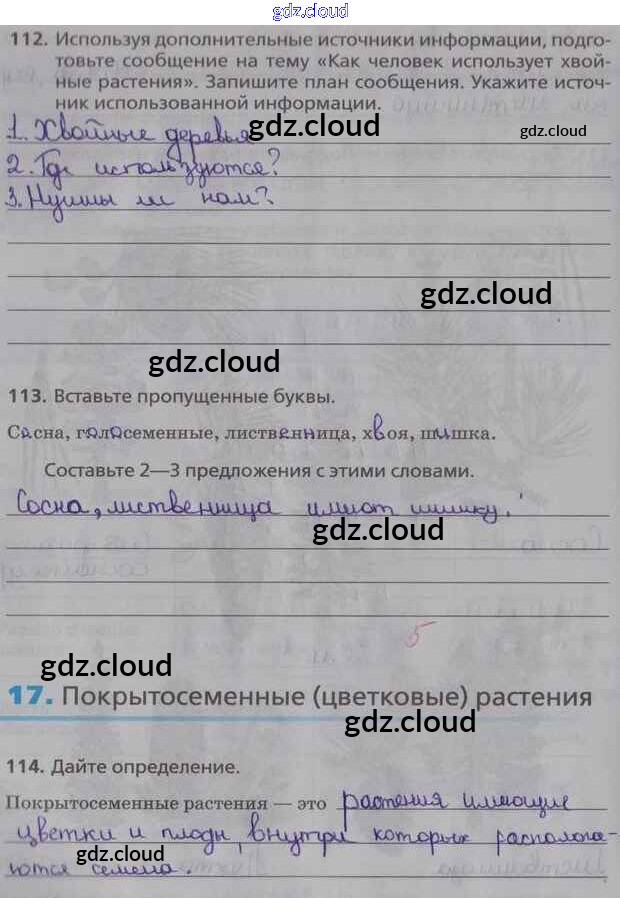 gdz.cloud
112. Используя дополнительные источники информации, подго-
товьте сообщение на тему «Как человек использует хвой-
ные растения». Запишите план сообщения. Укажите источ-
ник использованной информации.
1. Хвойные деревья gdz.cloud gdz.cloud
2. Где используются?
3. Нужны ли нам?
gdz.cloud
gdz.cloud
113. Вставьте пропущенные буквы.
Сосна, голосеменные, лиственница, хвоя, шишка.
Составьте 2—3 предложения с этими словами.
Сосна, лиственница имеют шишку.
gdz.cloud
5
gdz.cloud
17. Покрытосеменные (цветковые) растения
gdz.cloud
114. Дайте определение.
Покрытосеменные растения — это растения имеющие
цветки и плоды, внутри которых располога-
ются семена.
gdz.cloud